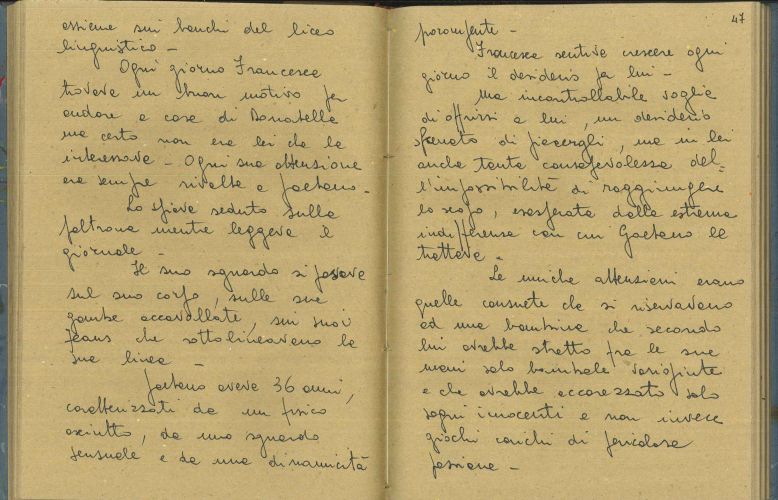 assieme sui banchi del liceo
linguistico -
Ogni giorno Francesca
trovava un buon motivo per
andare a casa di Donatella
ma certo non era lei che la
interessava - Ogni sua attenzione
era sempre rivolta a Gaetano -
Lo spiava seduto sulla
poltrona mentre leggeva il
giornale -
Il suo sguardo si posava
sul suo corpo, sulle sue
gambe accavallate, sui suoi
jeans che sottolineavano la
sua linea -
Gaetano aveva 36 anni,
caratterizzati da un fisico
asciutto, da uno sguardo
sensuale e da una dinamicità
47
prorompente -
Francesca sentiva crescere ogni
giorno il desiderio per lui -
Una incontrollabile voglia
di offrirsi a lui, un desiderio
sfrenato di piacergli, ma in lei
anche tanta consapevolezza del=
l'impossibilità di raggiungere
lo scopo, esasperata dalla estrema
indifferenza con cui Gaetano la
trattava -
Le uniche attenzioni erano
quelle consuete che si riservavano
ad una bambina che secondo
lui avrebbe stretto fra le sue
mani solo bambole variopinte
e che avrebbe accarezzato solo
sogni innocenti e non invece
giochi carichi di pericolosa
passione -